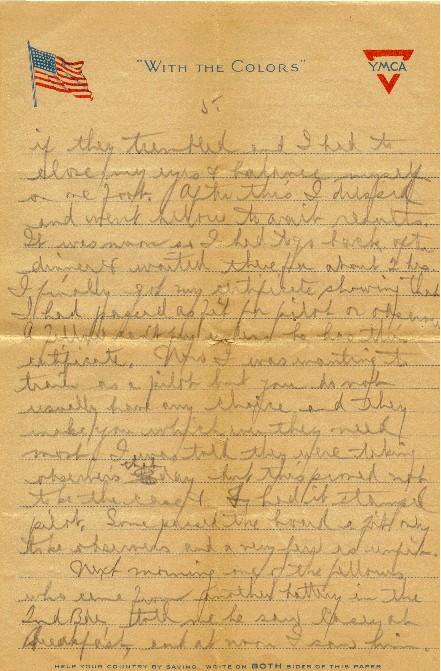 "WITH THE COLORS"
YMCA
5.
if they trembled and I had to
close my eyes & balance myself
on one foot. After this I dressed
and went below to await results.
It was noon so I had to go back aft
dinner & waited there for about 2 hrs.
I finally got my certificate showing that
I had passed as fit for pilot or observer
certificate. I was wanting to
train as a pilot but you do not
usually have any choice and they
make you whichever they need
most. I was told they were taking
observers that day but this proved not
to be the case & I had it stamped
pilot. Some passed the board as fit only
to be observers and a very few as unfit.
Next morning one of the fellows
who came from another battery in the
2nd Bde told me he saw Casey at
breakfast, and at noon I saw him.
HELP YOUR COUNTRY BY SAVING. WRITE ON BOTH SIDES OF THIS PAPER